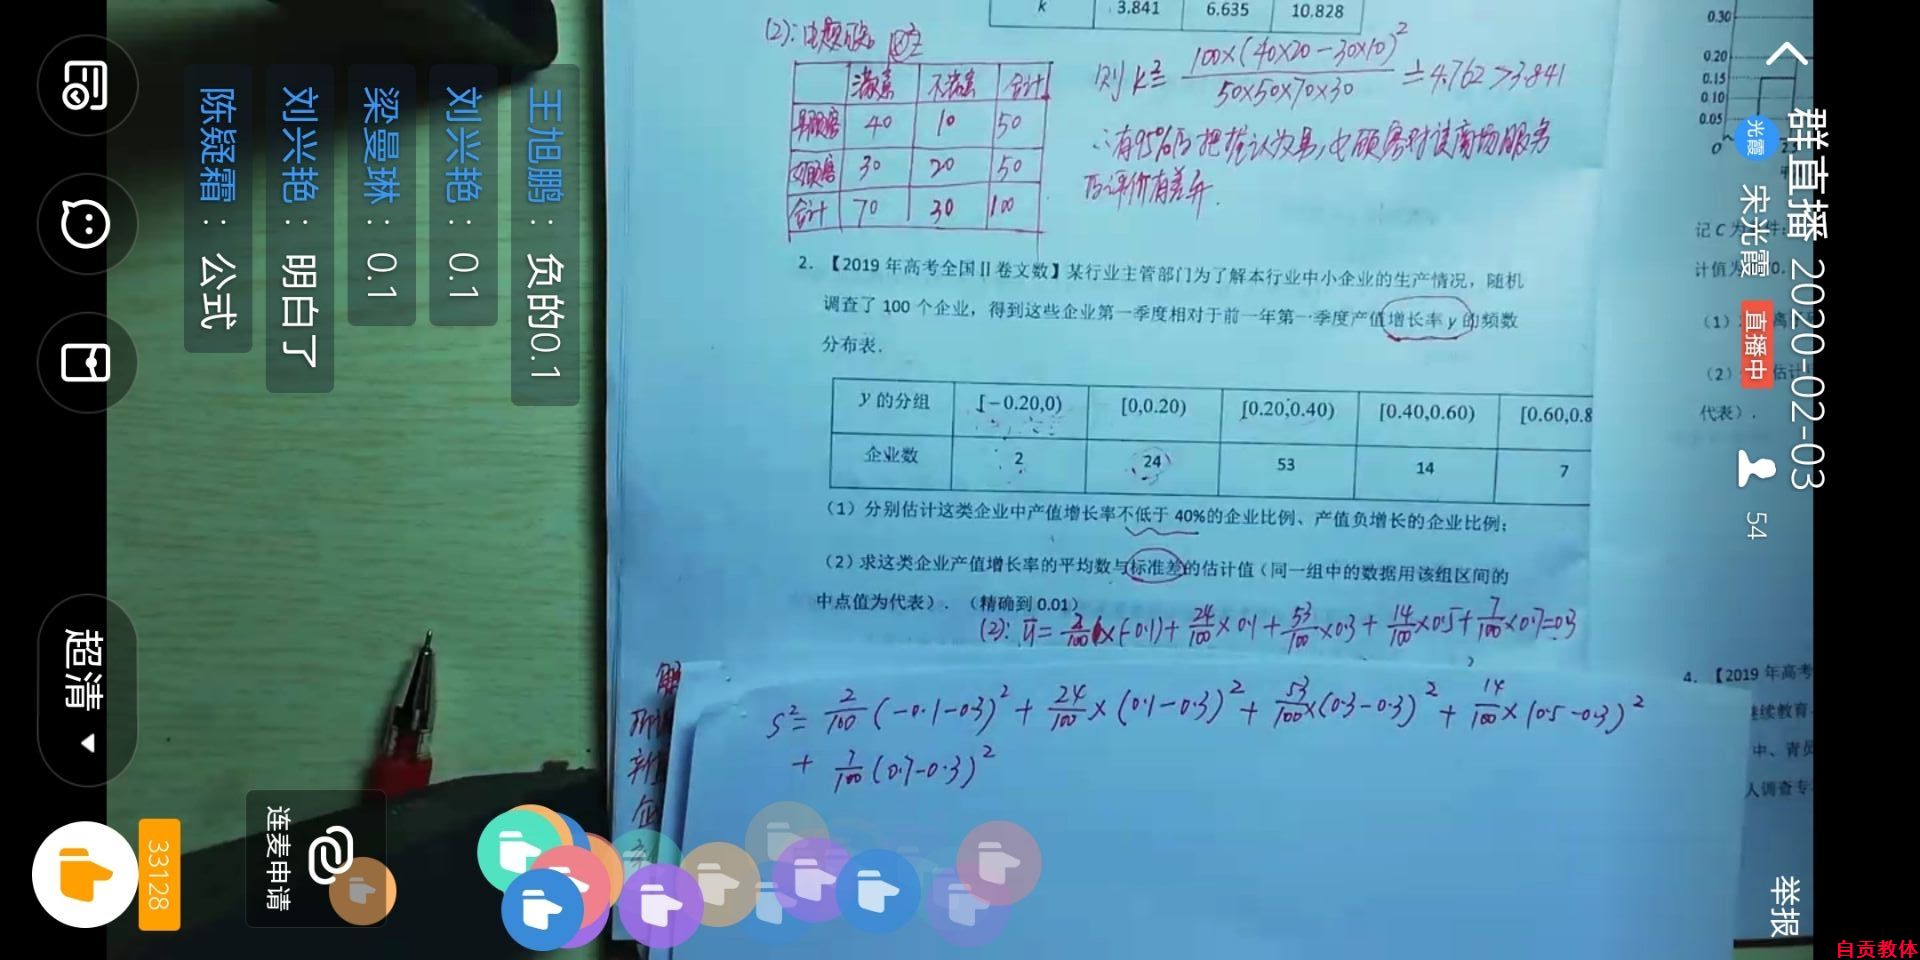 k 3.841 6.635 10.828
(2):由题可知
满意 不满意 合计
男顾客 40 10 50
女顾客 30 20 50
合计 70 30 100
则 k²= 100×(40×20-30×10)² / 50×50×70×30 ≐4.762>3.841
∴有95%的把握认为男,女顾客对该商场服务
的评价有差异.
2.【2019年高考全国Ⅱ卷文数】某行业主管部门为了解本行业中小企业的生产情况，随机
调查了100个企业，得到这些企业第一季度相对于前一年第一季度产值增长率y的频数
分布表.
y的分组 [-0.20,0) [0,0.20) [0.20,0.40) [0.40,0.60) [0.60,0.8
企业数 2 24 53 14 7
(1)分别估计这类企业中产值增长率不低于40%的企业比例、产值负增长的企业比例；
(2)求这类企业产值增长率的平均数与标准差的估计值(同一组中的数据用该组区间的
中点值为代表).(精确到0.01)
(2): ȳ= 2/100×(-0.1)+ 24/100×0.1+ 53/100×0.3+ 14/100×0.5+ 7/100×0.7=0.3
S²= 2/100(-0.1-0.3)²+ 24/100×(0.1-0.3)²+ 53/100×(0.3-0.3)²+ 14/100×(0.5-0.3)²
+ 7/100(0.7-0.3)²
0.30
0.20
0.15
0.10
0.05
0
记C为
计值为
(1)
(2) 估计
代表).
4.【2019年高考
继续教育
中、青员
人调查专
群直播 2020-02-03
光霞 宋光霞 直播中 54
举报
王旭鹏：负的0.1
刘兴艳：0.1
梁曼琳：0.1
刘兴艳：明白了
陈疑霜：公式
超清
连麦申请
33128
自贡教体